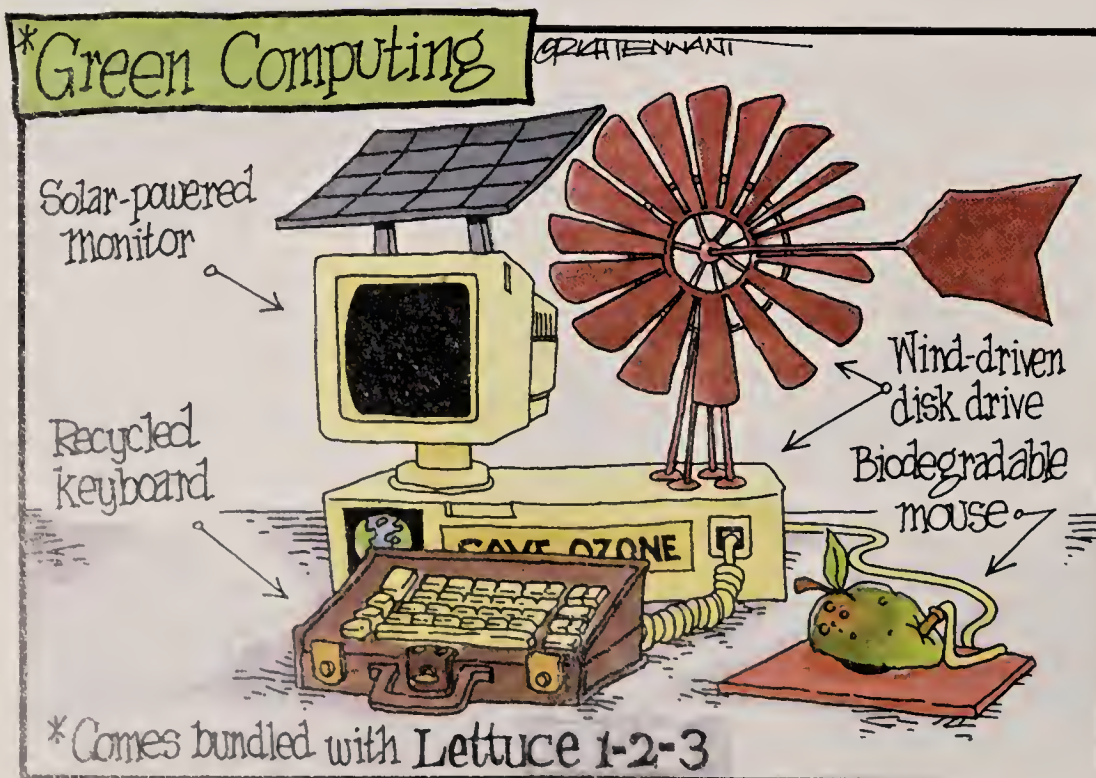 *Green Computing
©RICHTENNANT
Solar-powered
monitor
Wind-driven
disk drive
Recycled
keyboard
Biodegradable
mouse
SAVE OZONE
*Comes bundled with Lettuce 1-2-3